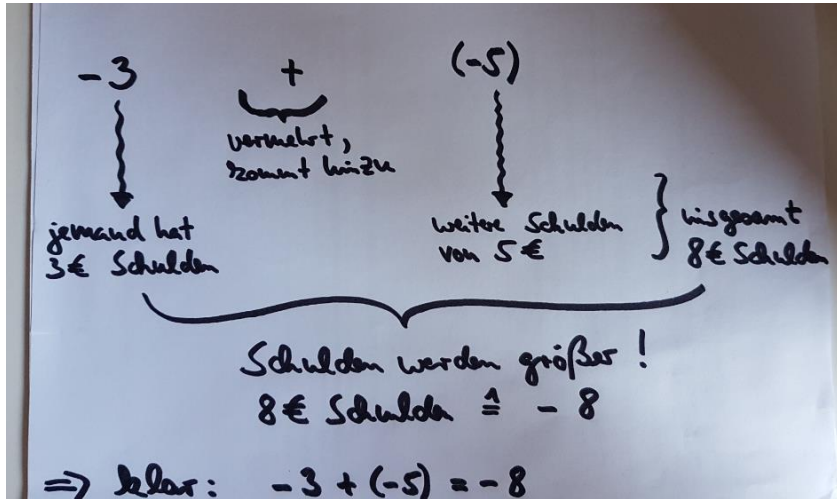 -3 + (-5)
vermehrt,
kommt hinzu
jemand hat
3€ Schulden
weitere Schulden
von 5€
insgesamt
8€ Schulden
Schulden werden größer!
8€ Schulden ≙ -8
⇒ klar: -3 + (-5) = -8